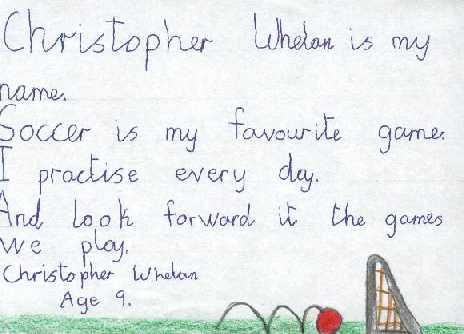 Christopher Whelan is my
name.
Soccer is my favourite game.
I practise every day.
And look forward it the games
we play.
Christopher Whelan
Age 9.